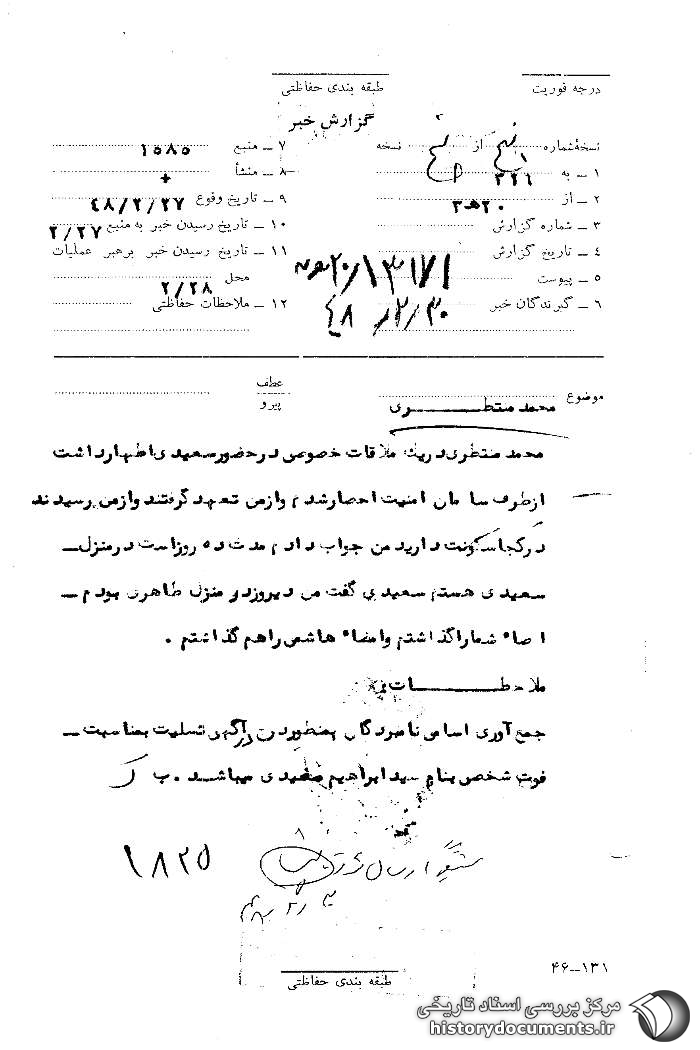 درجه فوریت
طبقه بندی حفاظتی
گزارش خبر
نسخهٔ شماره از نسخه
۱ ـ به ۳۲۶
۲ ـ از ۲۰هـ۳
۳ ـ شماره گزارش ۲۰/۱۳۱۷۱
۴ ـ تاریخ گزارش ۴۸/۲/۳۰
۵ ـ پیوست
۶ ـ گیرندگان خبر
۷ ـ منبع ۱۵۸۵
۸ ـ منشأ +
۹ ـ تاریخ وقوع ۴۸/۲/۲۷
۱۰ ـ تاریخ رسیدن خبر به منبع ۲/۲۷
۱۱ ـ تاریخ رسیدن خبر برهبر عملیات
محل ۲/۲۸
۱۲ ـ ملاحظات حفاظتی
موضوع محمد منتظـــری
عطف
پیرو
محمد منتظری در یک ملاقات خصوصی در حضور سعیدی اظهار داشت
از طرف سازمان امنیت احضار شدم و از من تعهد گرفتند و از من پرسیدند
در کجا سکونت دارید من جواب دادم مدت ده روز است در منزل ـ
سعیدی هستم سعیدی گفت من دیروز در منزل طاهری بودم ـ
امضاء شما را گذاشتم و امضاء هاشمی را هم گذاشتم .
ملاحظـــات
جمع آوری اسامی نامبردگان بمنظور درج در آگهی تسلیت بمناسبت ـ
فوت شخصی بنام سید ابراهیم سعیدی میباشد . ب ک
۱۸۲۵
ارسال
۴۶ـ۱۳۱
طبقه بندی حفاظتی
مرکز بررسی اسناد تاریخی
historydocuments.ir